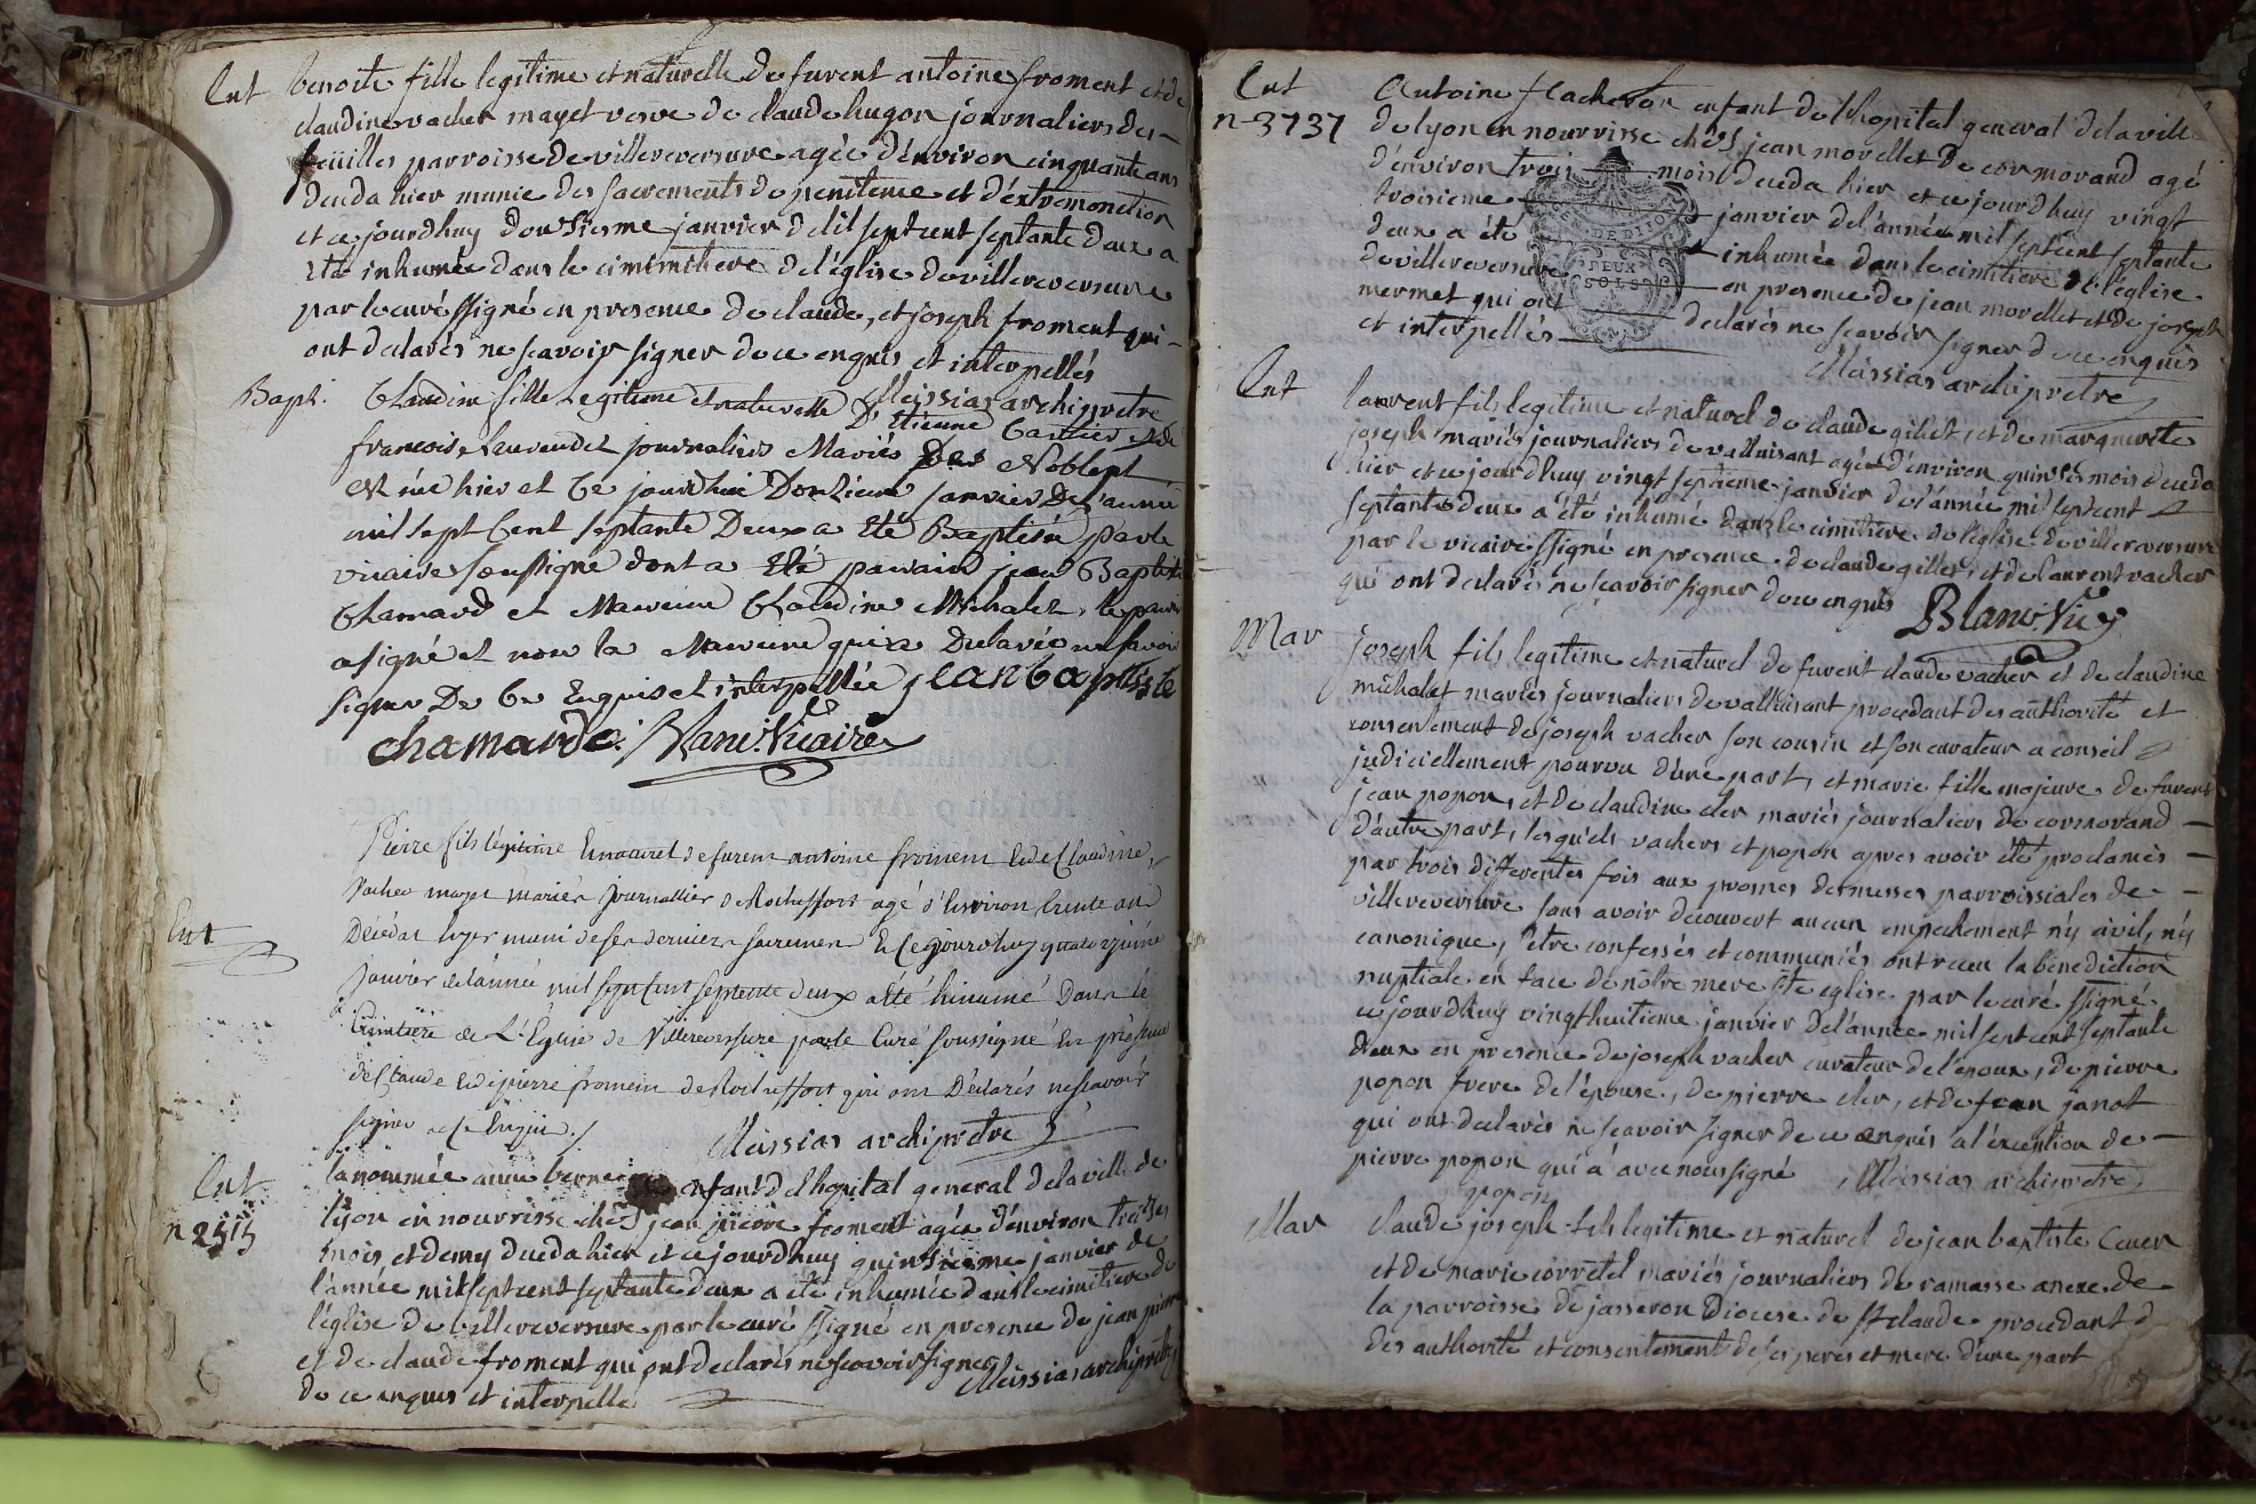 Ent benoite fille legitime et naturelle de furent antoine froment et de
claudine vacher mayet vesve de claude hugon journaliers des
feüilles parroisse de villereversure agée d'environ cinquante ans
deceda hier munie des sacrements de penitence et d'extremonction
et ce jourdhuy douzieme janvier de lil sept cent septante deux a
été inhumée dans le cimimitiere de l'église de villereversure
par le curé ssigné en presence de claude, et joseph froment qui
ont declarés ne scavoir signer de ce enquis et interpellés
Meissias archipretre
Bapt. Claudine fille Legitime et naturelle D'Etienne Cartier et de
francoise Lauvendet journaliers Mariés Des Noblent
est née hier et Ce jourdhui Douzieme janvier De l'année
mil sept Cent septante Deux a Eté Baptisée par le
vicaire soussigné dont a Eté parain jean Baptiste
Chamard et Mareine Claudine Michalet, le parin
a signé et non la Mareine qui a Declaré ne savoir
signer De Ce Enquis et interpellée jean baptiste
chamarde. Blanc. Vicaire
Pierre fils légitime & naturel de furent antoine froment & de Claudine
vacher mayet mariés journallier de Rocheffort agé d'Environ trente ans
Ent Décédat hyer muni de ses derniers sacremens & ce jourd'huy quatorzième
janvier de l'année mil sept Cent septente deux a été hinumé Dans le
Cimitiere de L'Eglise de Villereversure par le Curé soussigné En présence
de Claude & de pierre froment de Rocheffort qui ont Déclarés ne scavoir
signer de ce Enquis./ Meissias archipretre
Ent la nommée anne enfant de l'hopital general de la ville de
n 2515 lyon en nourrisse chés jean pierre froment agée d'environ treizes
mois et demy deceda hier et ce jourdhuy quinzieme janvier de
l'année mil sept cent septante deux a été inhumée dans le cimitiere de
l'église de villereversure par le curé ssigné en presence de jean pierre
et de claude froment qui ont declarés ne scavoir signer
de ce enquis et interpelle Meissias archipretre
Ent Antoine flacheron enfant de l'hopital general de la ville
n-3737 de lyon en nourrisse chés jean morellet de cormorand agé
d'environ trois mois deceda hier et ce jourdhuy vingt
troisieme janvier de l'année mil sept cent septante
deux a été inhumée dans le cimitiere de l'église
de villereversure en presence de jean morellet et de joseph
mermet qui ont declarés ne scavoir signer de ce enquis
et interpellés Meissias archipretre
DE DIJON
DEUX
SOLS
Ent laurent fils legitime et naturel de claude gillet, et de marguerite
joseph mariés journaliers de valluisant agé d'environ quinzes mois deceda
hier et ce jourdhuy vingt septieme janvier de l'année mil sept cent
septante deux a été inhumé dans le cimitiere de l'église de villereversure
par le vicaire ssigné en presence de claude gillet, et de laurent vacher
qui ont declarés ne scavoir signer de ce enquis Blanc. Vic.
Mar joseph fils legitime et naturel de furent claude vacher et de claudine
michalet mariés journaliers de valluisant procedant des authorité et
consentement de joseph vacher son cousin et son curateur a conseil
judiciellement pourvu d'une part, et marie fille majeure de furent
jean popon, et de claudine cler mariés journaliers de cormorand
d'autre part, lesquels vacher et popon apres avoir été proclamés
par trois differentes fois aux prones des messes parroissiales de
villereversure sans avoir decouvert aucun empechement n'y civil, n'y
canonique, s'etre confessés et communiés ont recu la benediction
nuptiale en face de nôtre mere ste eglise par le curé ssigné
ce jourdhuy vingthuitieme janvier de l'année mil sept cent septante
deux en presence de joseph vacher curateur de l'epoux, de pierre
popon frere de l'épouse, de pierre cler, et de jean janot
qui ont declarés ne scavoir signer de ce enquis a l'exception de
pierre popon qui a avec nous signé Meissias archipretre
popon
Mar claude joseph fils legitime et naturel de jean baptiste
et de marie corretel mariés journaliers de ramasse anexe de
la parroisse de jasseron Diocese de st claude procedant
des authorité et consentement de ses peres et mere d'une part